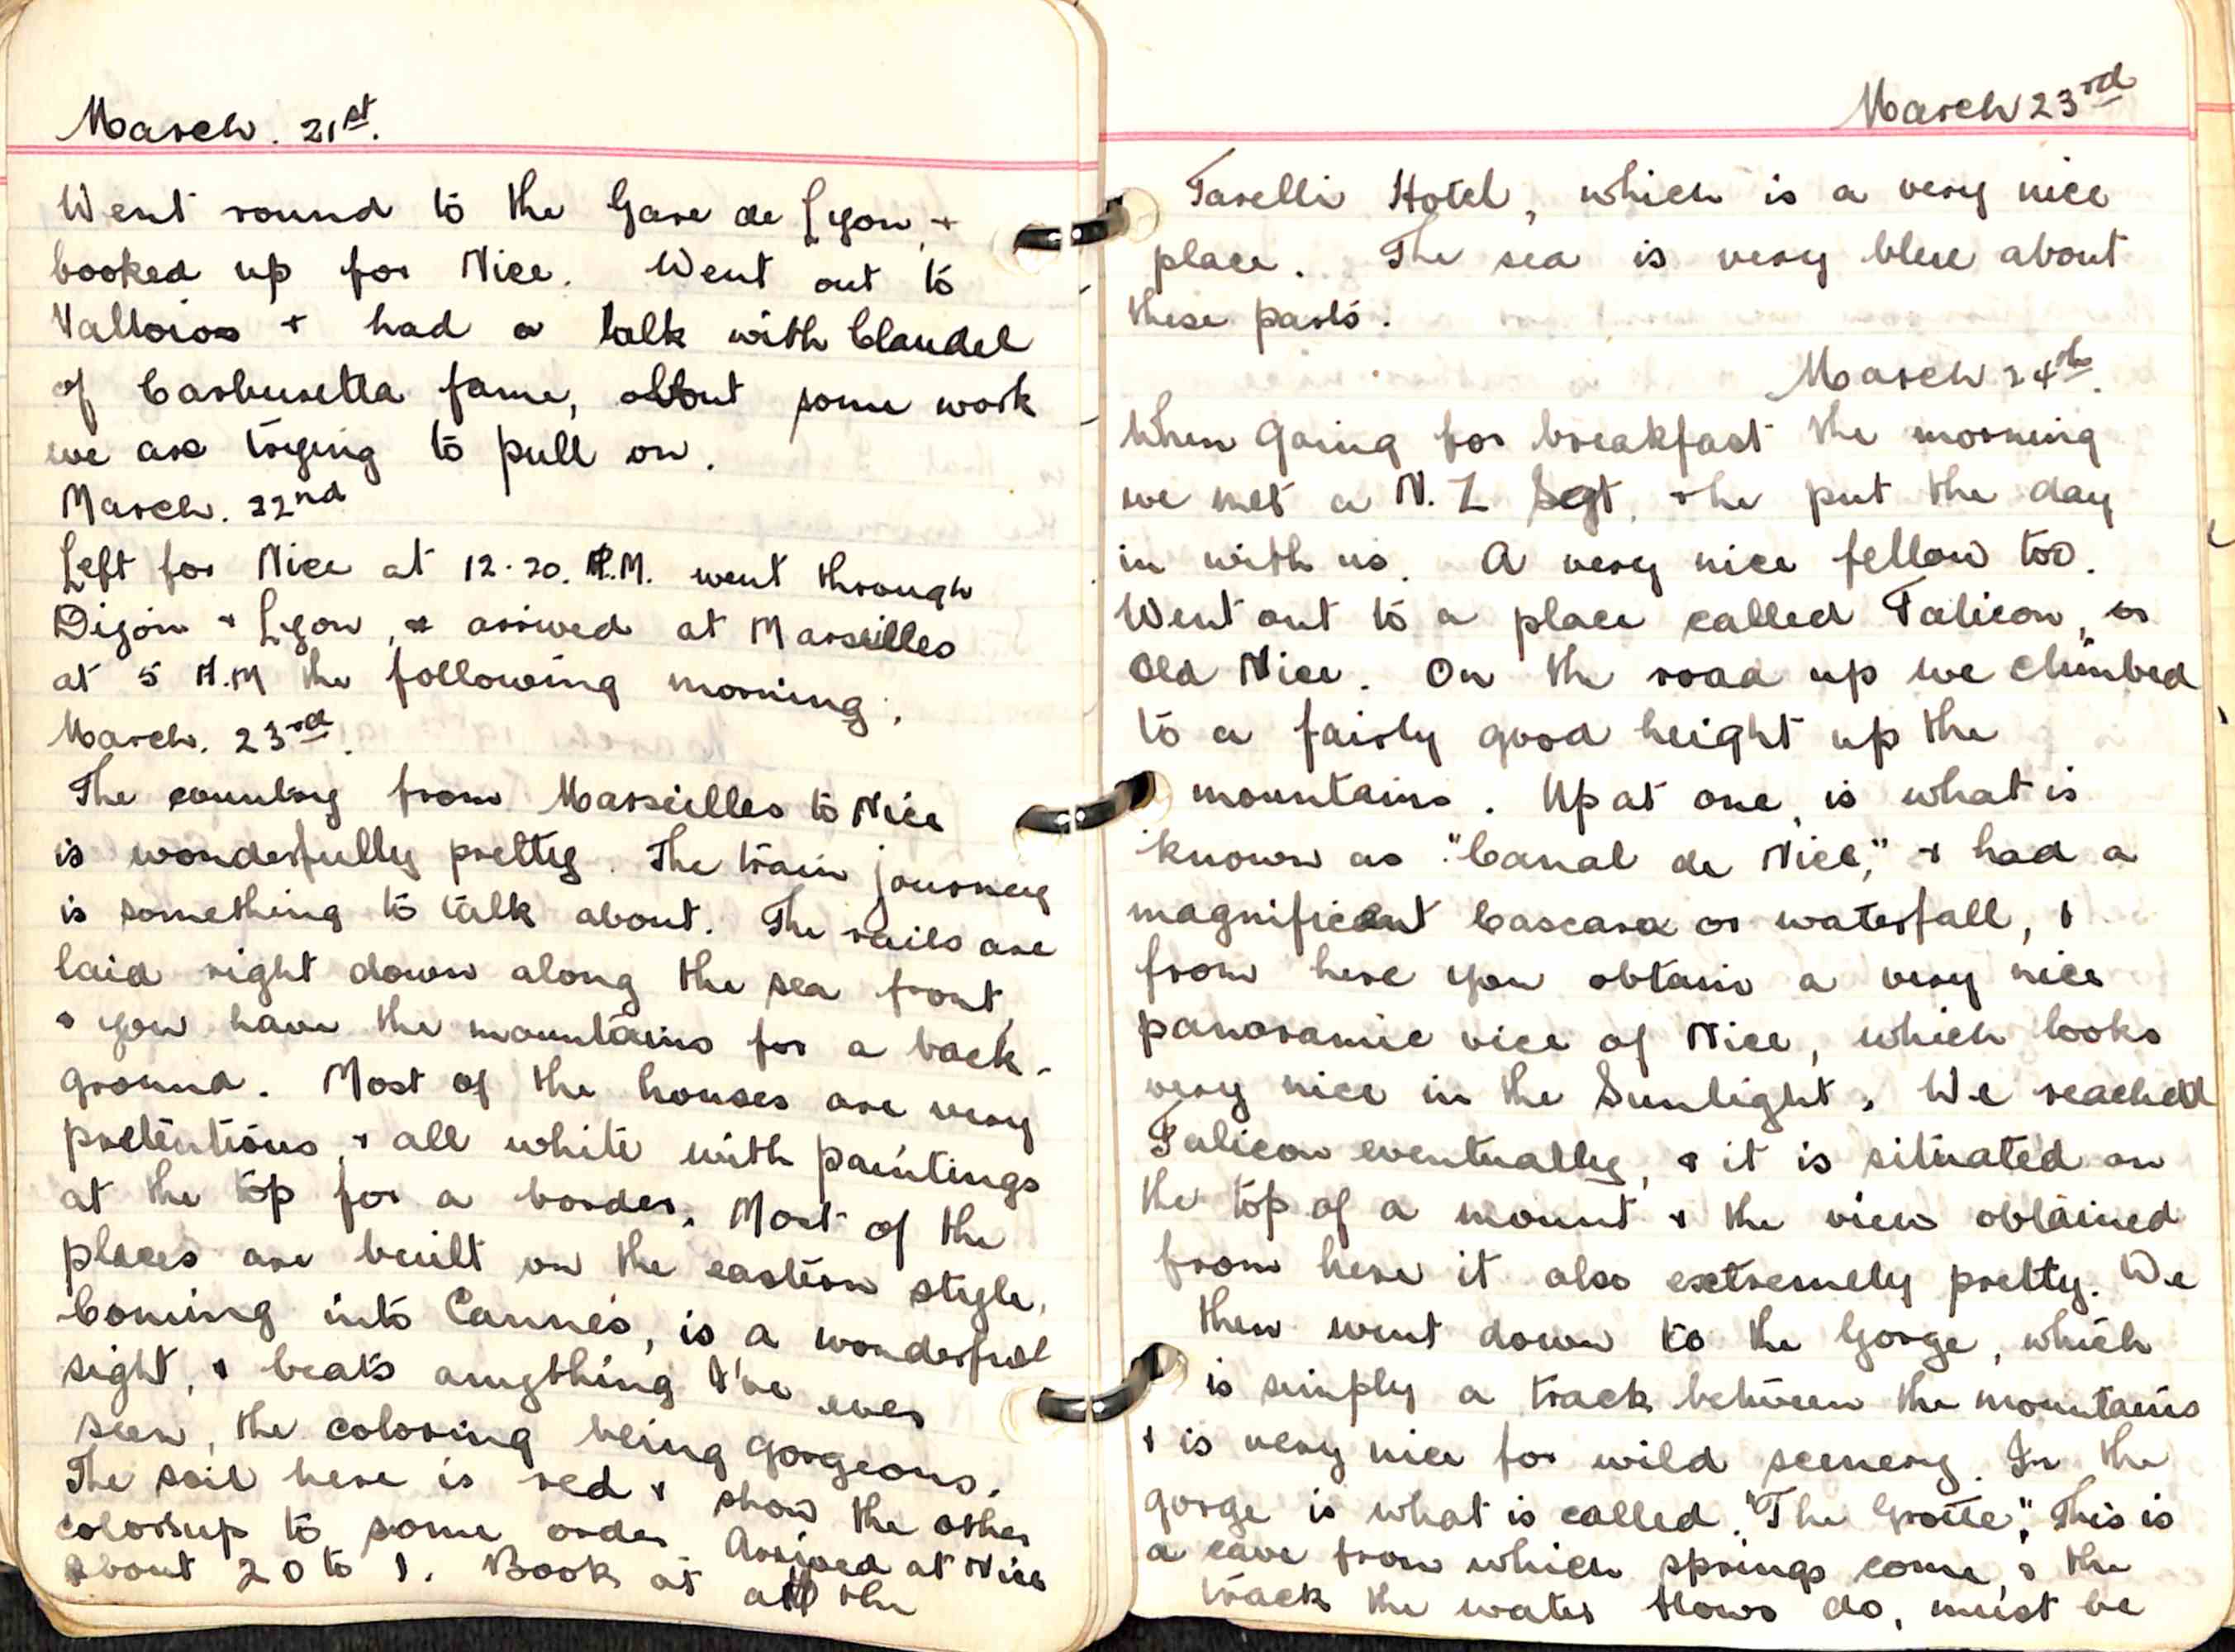 March. 21st.
Went round to the Gare de Lyon, +
booked up for Nice. Went out to
Valloios + had a talk with Claudel
of Carburetta fame, about some work
we are trying to pull on.
March. 22nd
Left for Nice at 12.20. P.M. went through
Dijon + Lyon, + arrived at Marseilles
at 5 A.M the following morning.
March. 23rd.
The country from Marseilles to Nice
is wonderfully pretty. The train journey
is something to talk about. The rails are
laid right down along the sea front,
+ you have the mountains for a back-
ground. Most of the houses are very
pretentious, + all white with paintings
at the top for a border. Most of the
places are built on the eastern style.
Coming into Cannes, is a wonderful
sight, + beats anything I've ever
seen, the coloring being gorgeous.
The soil here is red + show the other
colors up to some order. Arrived at Nice
about 20 to 1. Book at the
March 23rd
Tarelli Hotel, which is a very nice
place. The sea is very blue about
these parts.
March 24th.
When going for breakfast the morning
we met a N.Z Sgt, + he put the day
in with us. A very nice fellow too.
Went out to a place called Falicon, or
Old Nice. On the road up we climbed
to a fairly good height up the
mountains. Up at one, is what is
known as "Canal de Nice," + had a
magnificent Cascara or waterfall, +
from here you obtain a very nice
panoramic vice of Nice, which looks
very nice in the Sunlight. We reached
Falicon eventually, + it is situated on
the top of a mount + the view obtained
from here it also extremely pretty. We
then went down to the Gorge, which
is simply a track between the mountains
+ is very nice for wild scenery. In the
gorge is what is called "The Grotte". This is
a cave from which springs come, + the
track the water flows do, must be